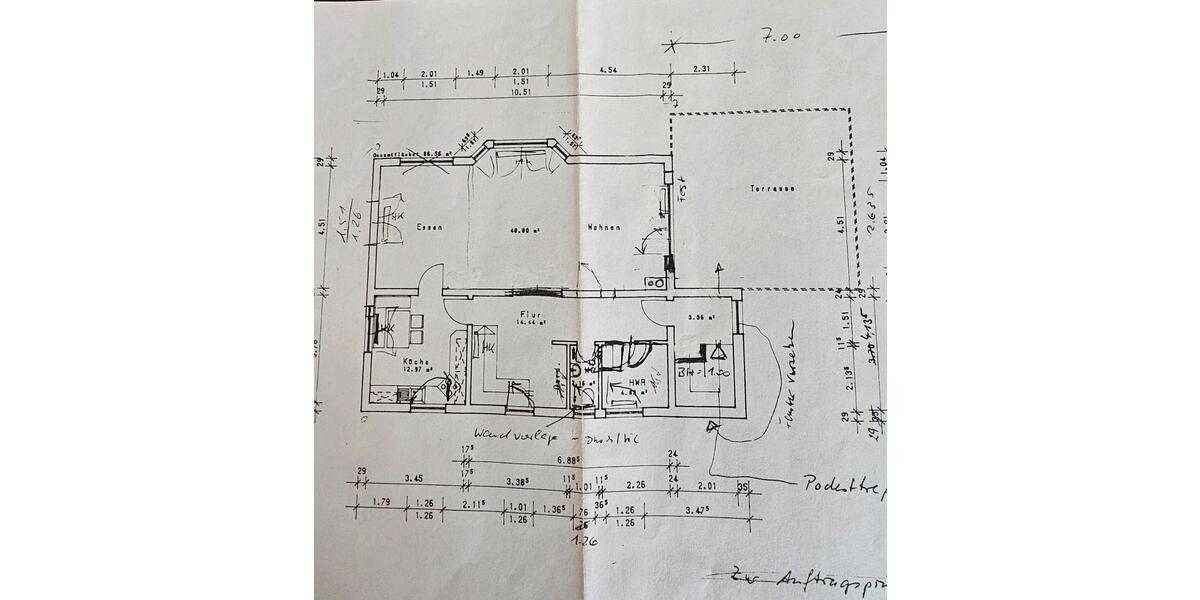 7.00
1.04 2.01 1.49 2.01 4.54 2.31
1.51 1.51
29 10.51 29
Gesamtfläche: 86.56 m²
HK
29
29
1.04
Fest
Terrasse
4.51
1.51
1.26
HK
Essen
48.80 m²
Wohnen
4.51
2.635
24
29
Flur
14.44 m²
3.36 m²
1.51
4.135
HK
HK
11⁵
Küche
12.97 m²
HWR
BRH = 1.00
2.13⁵
Fenster versetzen
29
29
Wandvorlage - Dusch/WC
17⁵ 6.88⁵ 24
29 3.45 17⁵ 3.38⁵ 11⁵ 1.01 11⁵ 2.26 24 2.01 35
Podesttrep
1.79 1.26 2.11⁵ 1.01 1.36⁵ 76 36⁵ 1.26 3.47⁵
1.26 1.26 1.26
1.26
Zur Auftrags